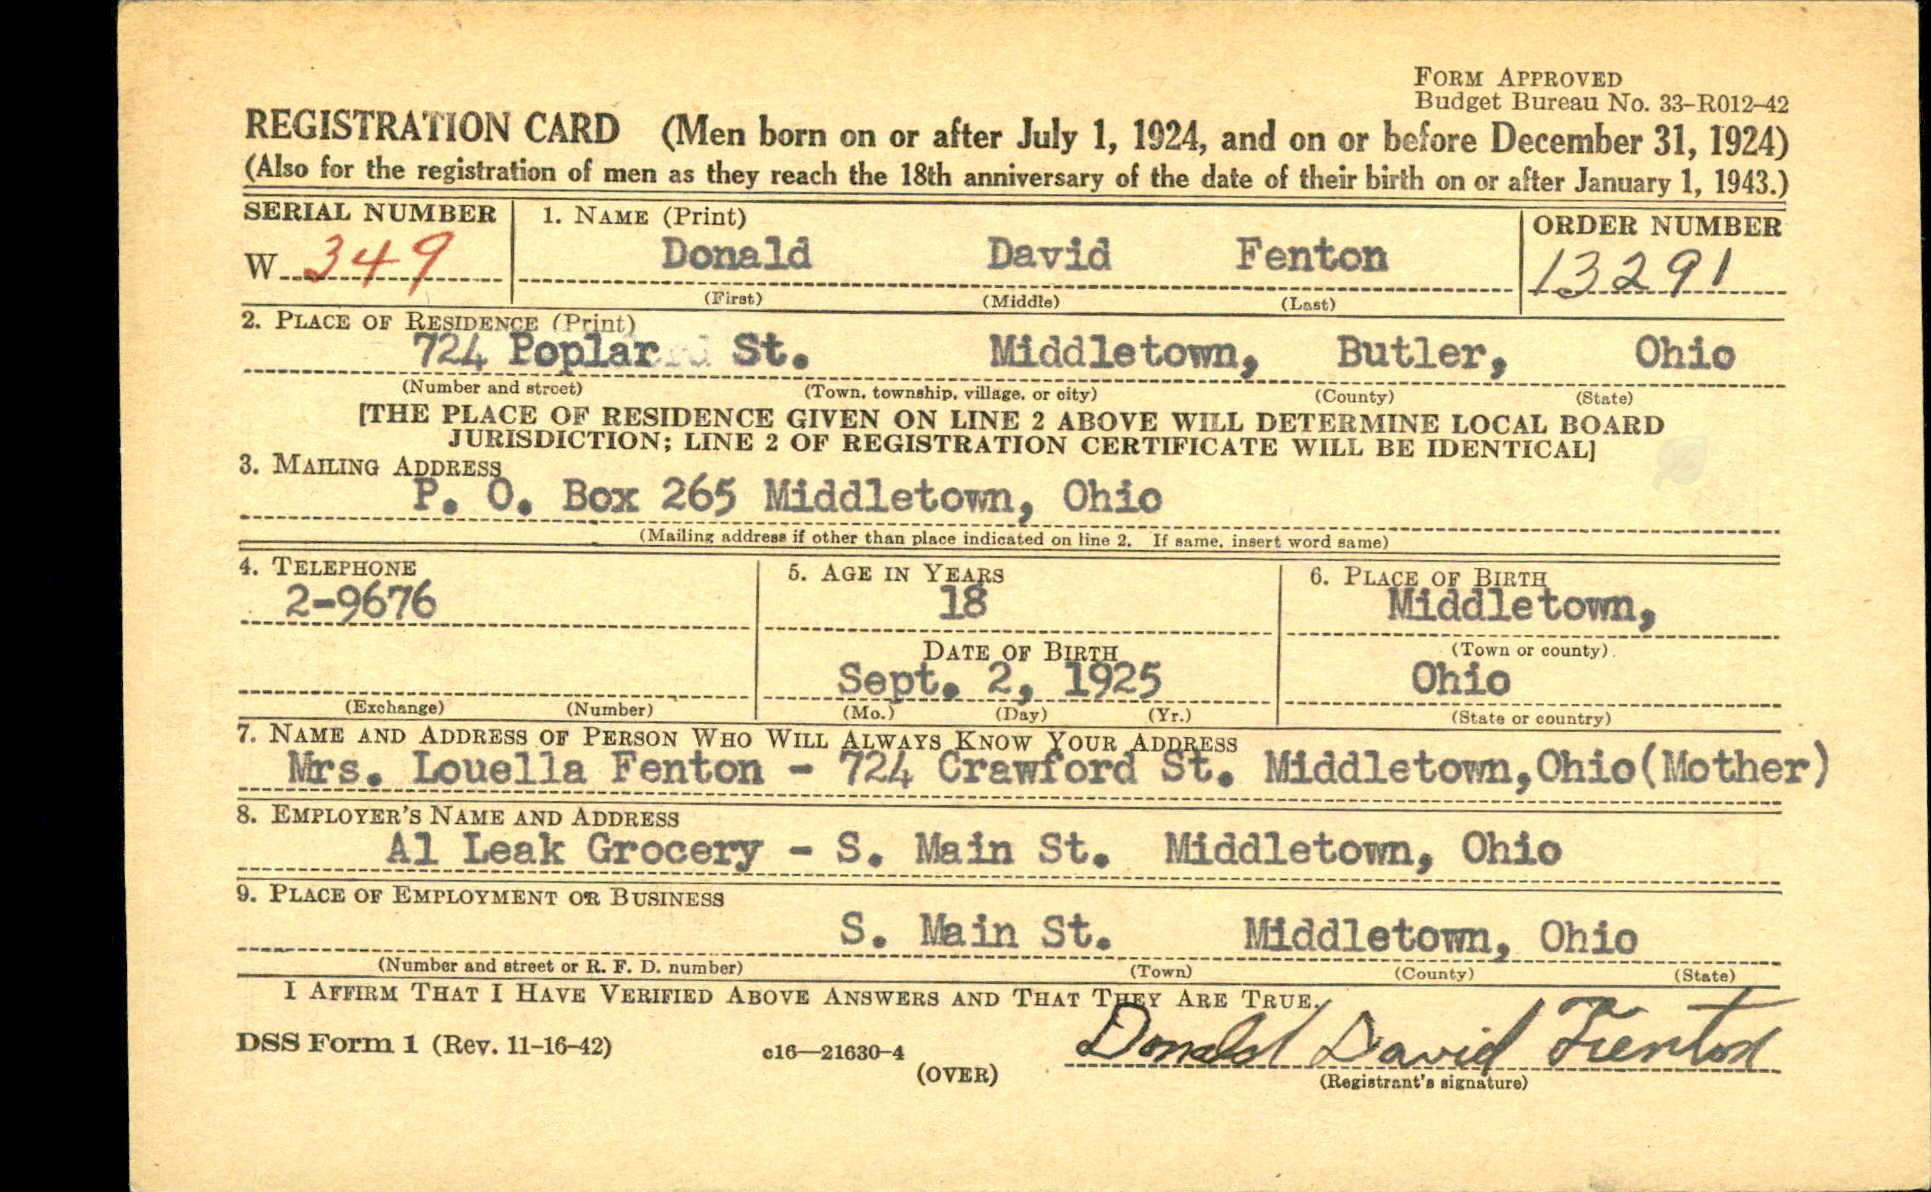 FORM APPROVED
Budget Bureau No. 33–R012–42
REGISTRATION CARD (Men born on or after July 1, 1924, and on or before December 31, 1924)
(Also for the registration of men as they reach the 18th anniversary of the date of their birth on or after January 1, 1943.)
SERIAL NUMBER 1. NAME (Print) ORDER NUMBER
W 349 Donald David Fenton 13291
(First) (Middle) (Last)
2. PLACE OF RESIDENCE (Print)
724 Poplar St. Middletown, Butler, Ohio
(Number and street) (Town, township, village, or city) (County) (State)
[THE PLACE OF RESIDENCE GIVEN ON LINE 2 ABOVE WILL DETERMINE LOCAL BOARD
JURISDICTION; LINE 2 OF REGISTRATION CERTIFICATE WILL BE IDENTICAL]
3. MAILING ADDRESS
P. O. Box 265 Middletown, Ohio
(Mailing address if other than place indicated on line 2. If same, insert word same)
4. TELEPHONE 5. AGE IN YEARS 6. PLACE OF BIRTH
2-9676 18 Middletown,
DATE OF BIRTH (Town or county)
Sept. 2, 1925 Ohio
(Exchange) (Number) (Mo.) (Day) (Yr.) (State or country)
7. NAME AND ADDRESS OF PERSON WHO WILL ALWAYS KNOW YOUR ADDRESS
Mrs. Louella Fenton - 724 Crawford St. Middletown,Ohio(Mother)
8. EMPLOYER'S NAME AND ADDRESS
Al Leak Grocery - S. Main St. Middletown, Ohio
9. PLACE OF EMPLOYMENT OR BUSINESS
S. Main St. Middletown, Ohio
(Number and street or R. F. D. number) (Town) (County) (State)
I AFFIRM THAT I HAVE VERIFIED ABOVE ANSWERS AND THAT THEY ARE TRUE.
DSS Form 1 (Rev. 11-16-42) c16—21630-4 Donald David Fenton
(OVER) (Registrant's signature)